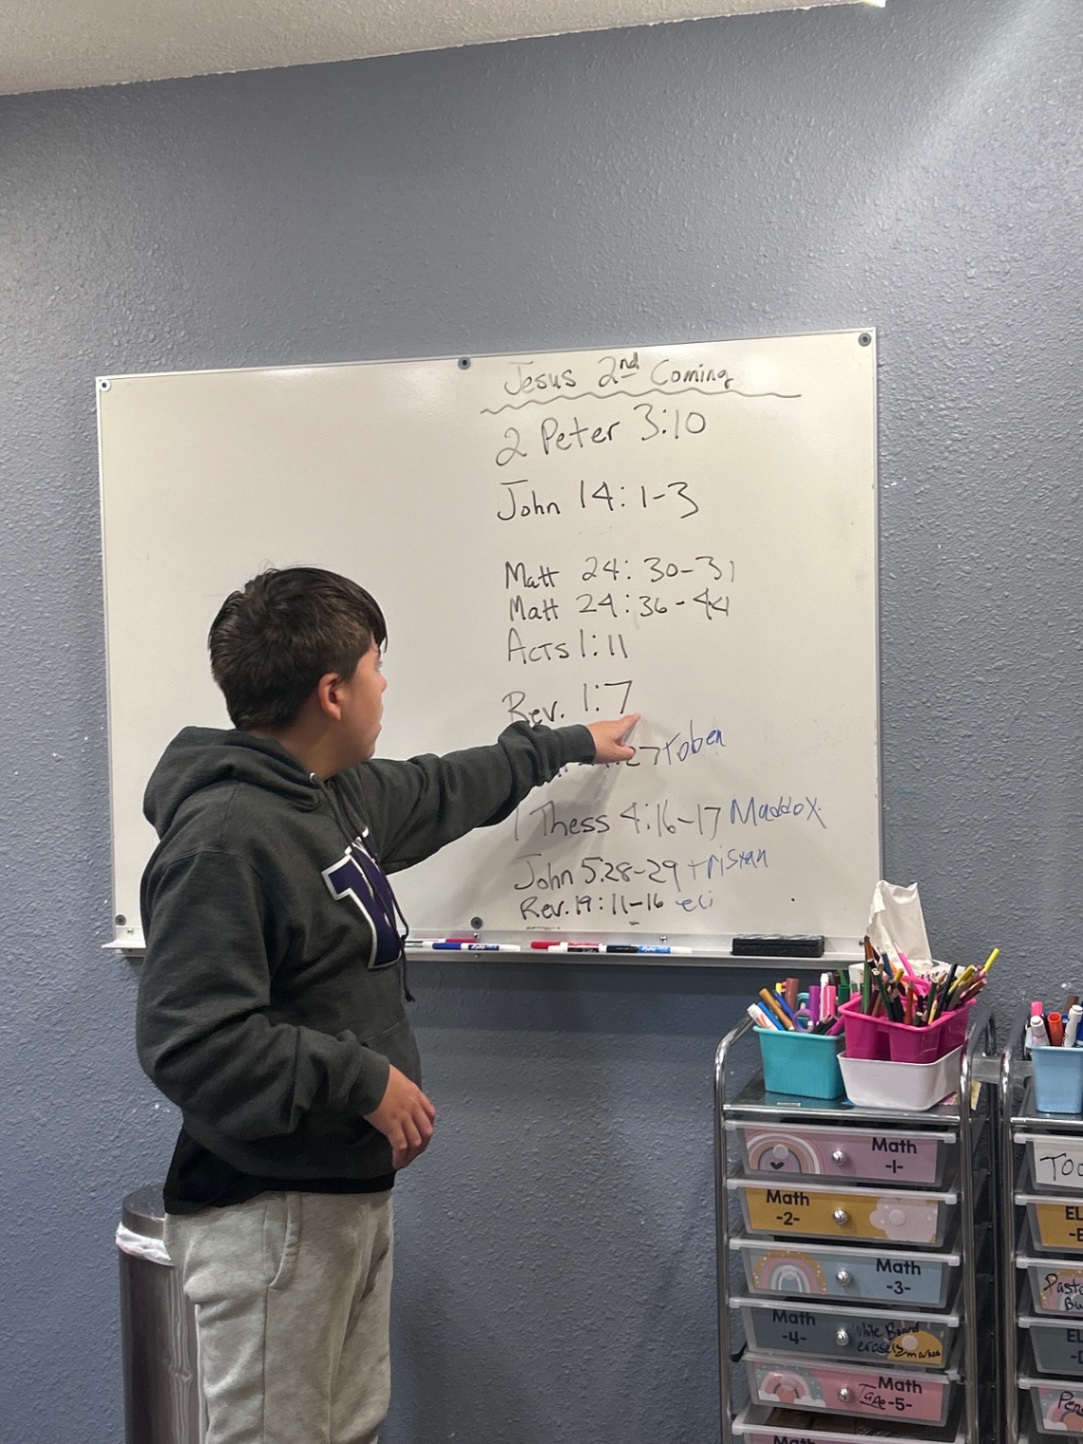 Jesus 2nd Coming
2 Peter 3:10
John 14: 1-3
Matt 24: 30-31
Matt 24: 36-44
Acts 1:11
Rev. 1:7
27 Toben
1 Thess 4:16-17 Maddox
John 5:28-29 tristan
Rev. 19:11-16 eli
W
Math
-1-
Math
-2-
Math
-3-
Math
-4-
White Board
erasers
markers
Math
Tape -5-
Math
Too
EL
-E
Paste
EL
Pen